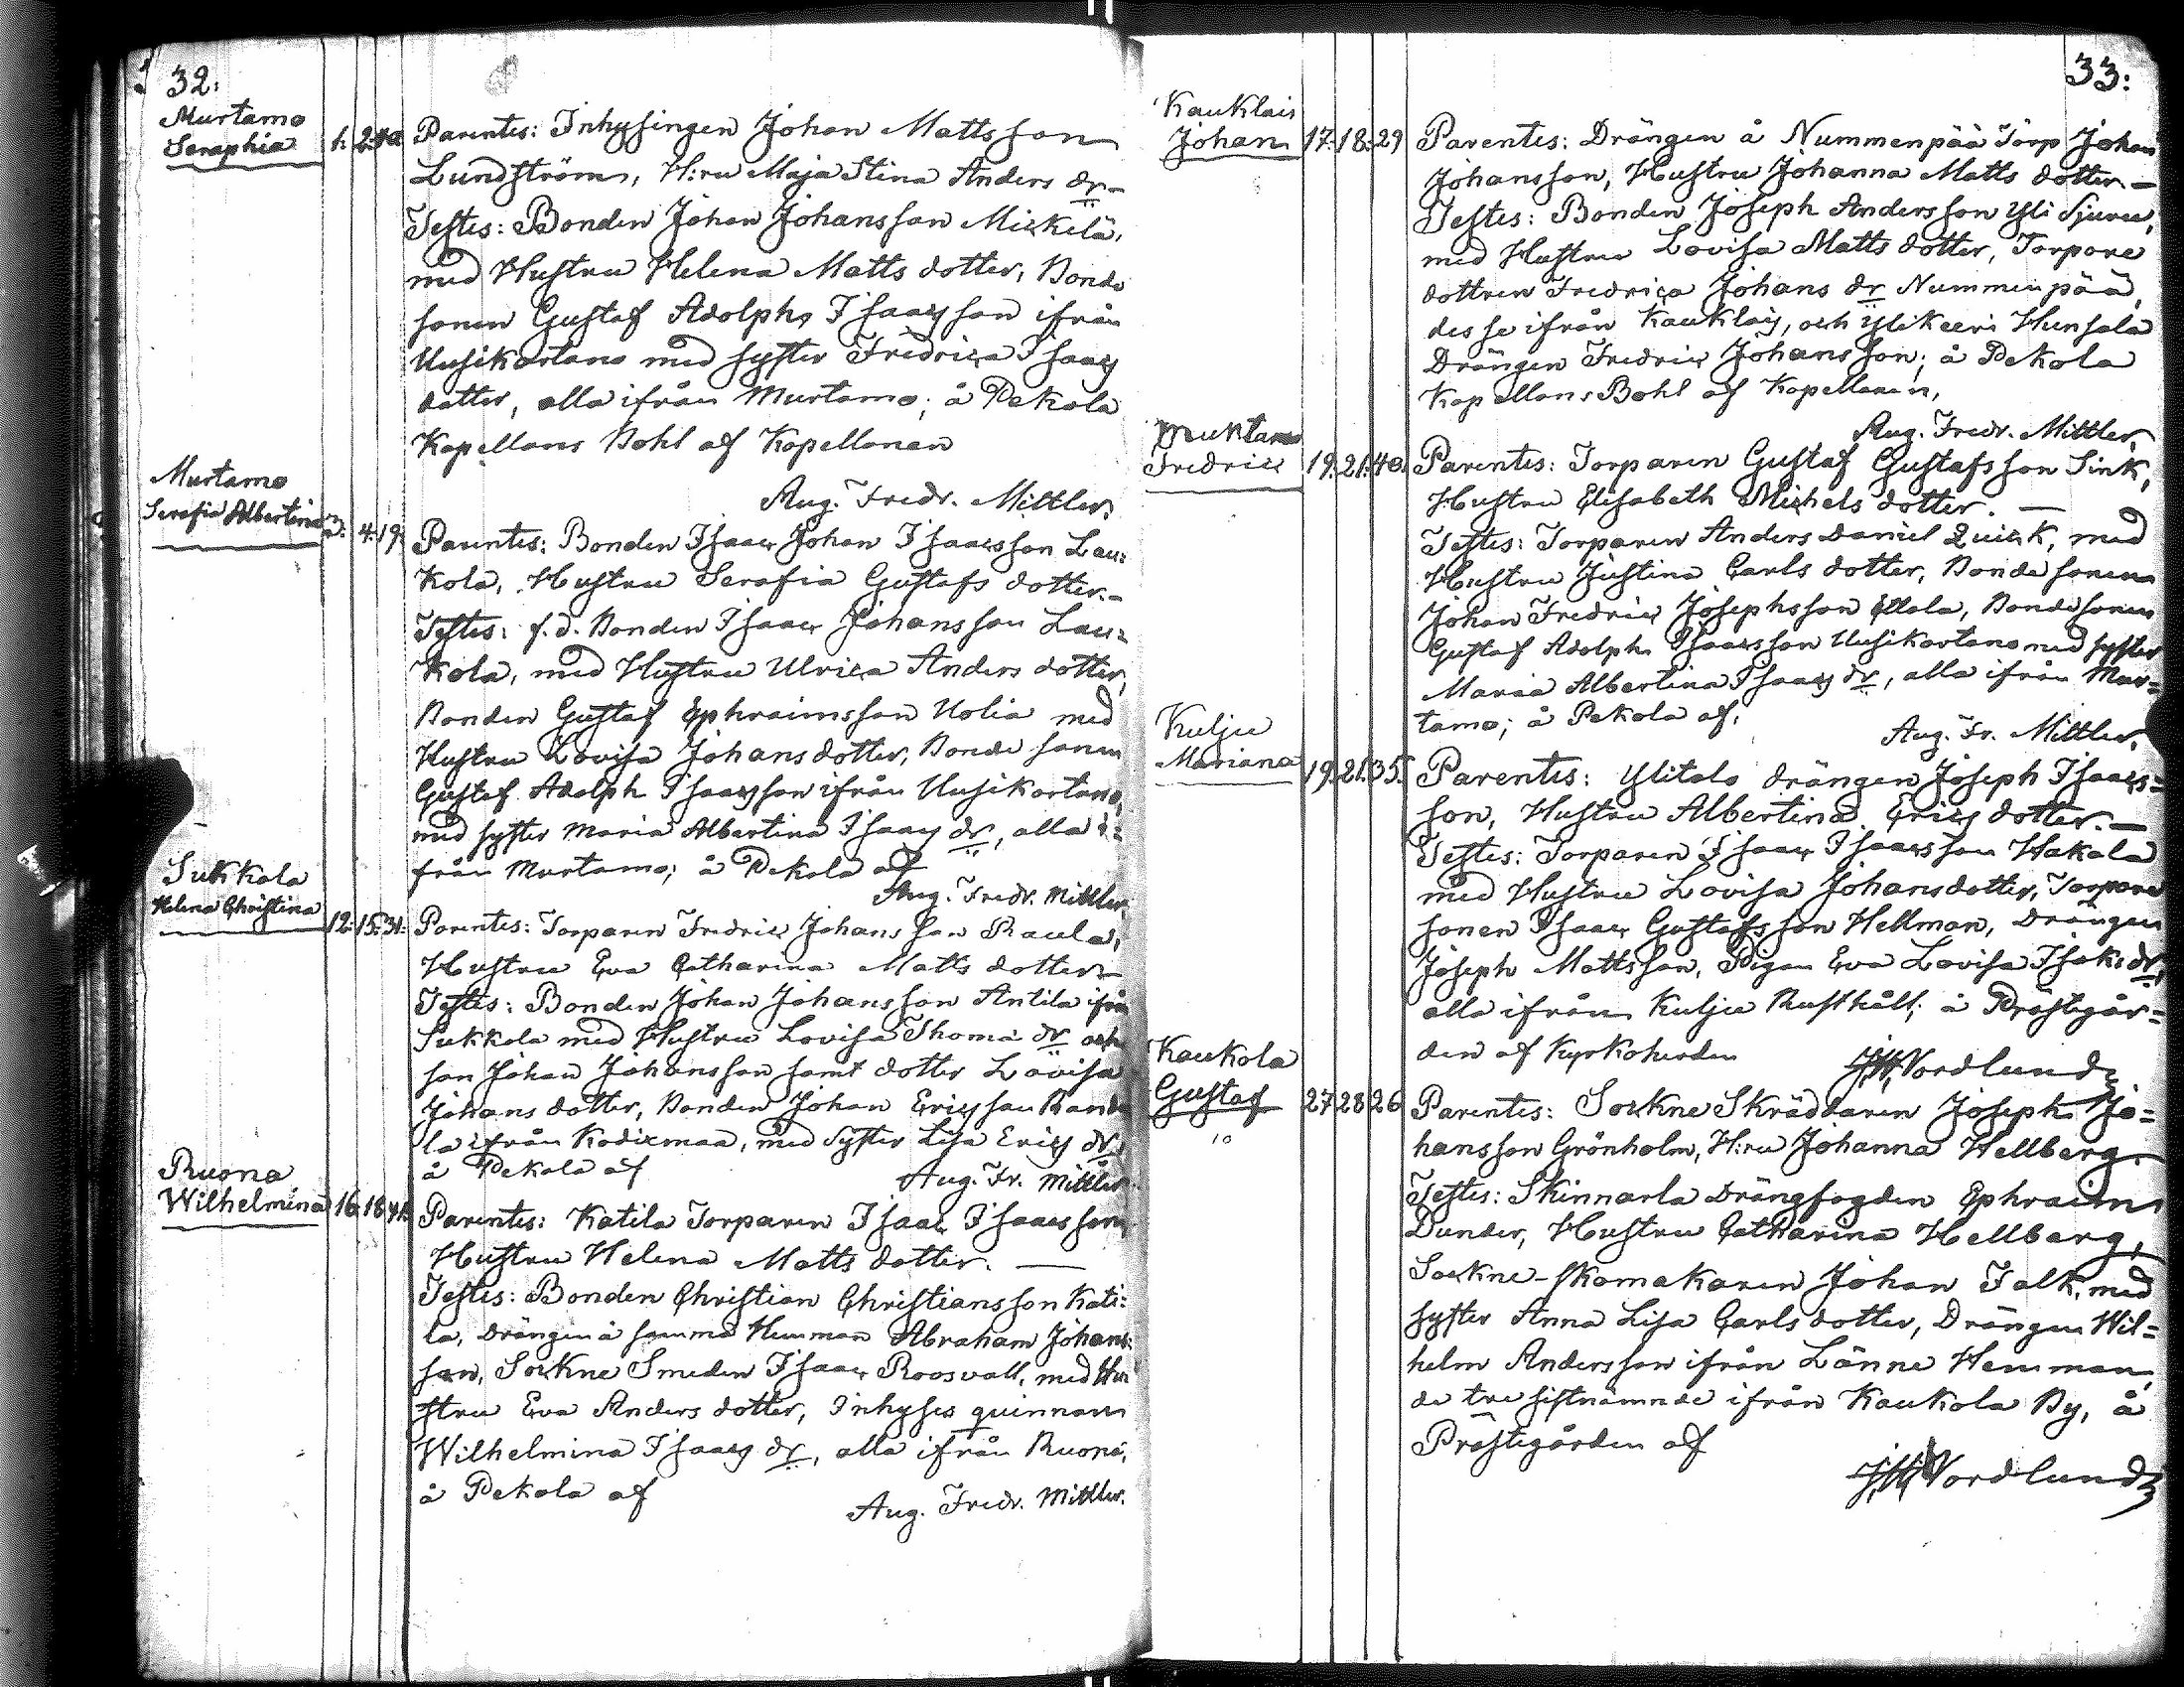 32:
Murtamo
Seraphia 1. 2. 40
Parentes: Inhysingen Johan Mattsson
Lundström, H:ru Maja Stina Anders dr. –
Testes: Bonden Johan Johansson Mickelä,
med Hustru Helena Matts dotter, Bonde
sonen Gustaf Adolph Isaacsson ifrån
Uusikartano med syster Fredrica Isaacs
dotter, alla ifrån Murtamo; å Pekola
Kapellans Bohl af Kapellanen
Aug. Fredr. Mittler.
Murtamo
Serafia Albertina 3. 4. 19.
Parentes: Bonden Isaac Johan Isaacsson Lau:
kola, Hustru Serafia Gustafs dotter. –
Testes: f. d. Bonden Isaac Johansson Lau:
kola, med Hustru Ulrica Anders dotter,
Bonden Gustaf Ephraimsson Uolia med
Hustru Lovisa Johans dotter, Bonde sonen
Gustaf Adolph Isaacsson ifrån Uusikartano,
med syster Maria Albertina Isaacs dr, alla i:
från Murtamo; å Pekola af
Aug. Fredr. Mittler.
Sukkola
Helena Christina 12. 15. 31.
Parentes: Torparen Fredric Johansson Raula,
Hustru Eva Catharina Matts dotter –
Testes: Bonden Johan Johansson Antila ifrån
Sukkola med Hustru Lovisa Thomæ dr och
son Johan Johansson samt dotter Lovisa
Johans dotter, Bonden Johan Ericsson
la ifrån Kodixmaa, med Syster Lisa Erics dr,
å Pekola af Aug. Fr. Mittler.
Ruona
Wilhelmina 16. 18.
Parentes: Katila Torparen Isaac Isaacsson,
Hustru Helena Matts dotter. —
Testes: Bonden Christian Christiansson Kati:
la, Drängen å samma Hemman Abraham Johans:
son, Sockne Smeden Isaac Roosvall, med Hu
stru Eva Anders dotter, Inhyses quinnan
Wilhelmina Isaacs dr, alla ifrån Ruona,
å Pekola af
Aug. Fredr. Mittler.
33:
Kauklais
Johan 17. 18. 29
Parentes: Drängen å Nummenpää Torp Johan
Johansson, Hustru Johanna Matts dotter. –
Testes: Bonden Joseph Andersson Yli Sjuru,
med Hustru Lovisa Matts dotter, Torpare
dottren Fredrica Johans dr Nummenpää,
desse ifrån Kauklais, och Ylikeeri Hunsala
Drängen Fredric Johansson; å Pekola
Kapellans Bohl af Kapellanen,
Aug. Fredr. Mittler.
Fredric 19. 21. 40.
Parentes: Torparen Gustaf Gustafsson Sink,
Hustru Elisabeth Michels dotter. —
Testes: Torparen Anders Daniel Quick, med
Hustru Justina Carls dotter, Bonde sonen
Johan Fredric Josephsson Ellola, Bondesonen
Gustaf Adolph Isaacsson Uusikartano med syster
Maria Albertina Isaacs dr, alla ifrån Mur=
tamo; å Pekola af.
Aug. Fr. Mittler.
Kulju
Mariana 19. 21. 35.
Parentes: Ylitalo drängen Joseph Isaacs=
son, Hustru Albertina Erics dotter. —
Testes: Torparen Isaac Isaacsson Hakala
med Hustru Lovisa Johansdotter, Torpare
sonen Isaac Gustafsson Hellman, Drängen
Joseph Mattsson, Pigan Eva Lovisa Isaks dr,
alla ifrån Kulju Rusthåll; å Prästegår=
den af Kyrkoherden
Nordlund
Kaukola
Gustaf 27 28 26
Parentes: Sockne Skräddaren Joseph Jo=
hansson Grönholm, H:ru Johanna Hellberg.
Testes: Skinnarla Drängfogden Ephraim
Dunder, Hustru Catharina Hellberg,
Sockne-skomakaren Johan Falk, med
syster Anna Lisa Carls dotter, Drängen Wil=
helm Andersson ifrån Länne Hemman,
de tre sistnämnde ifrån Kaukola By, å
Prästegården af
Nordlund